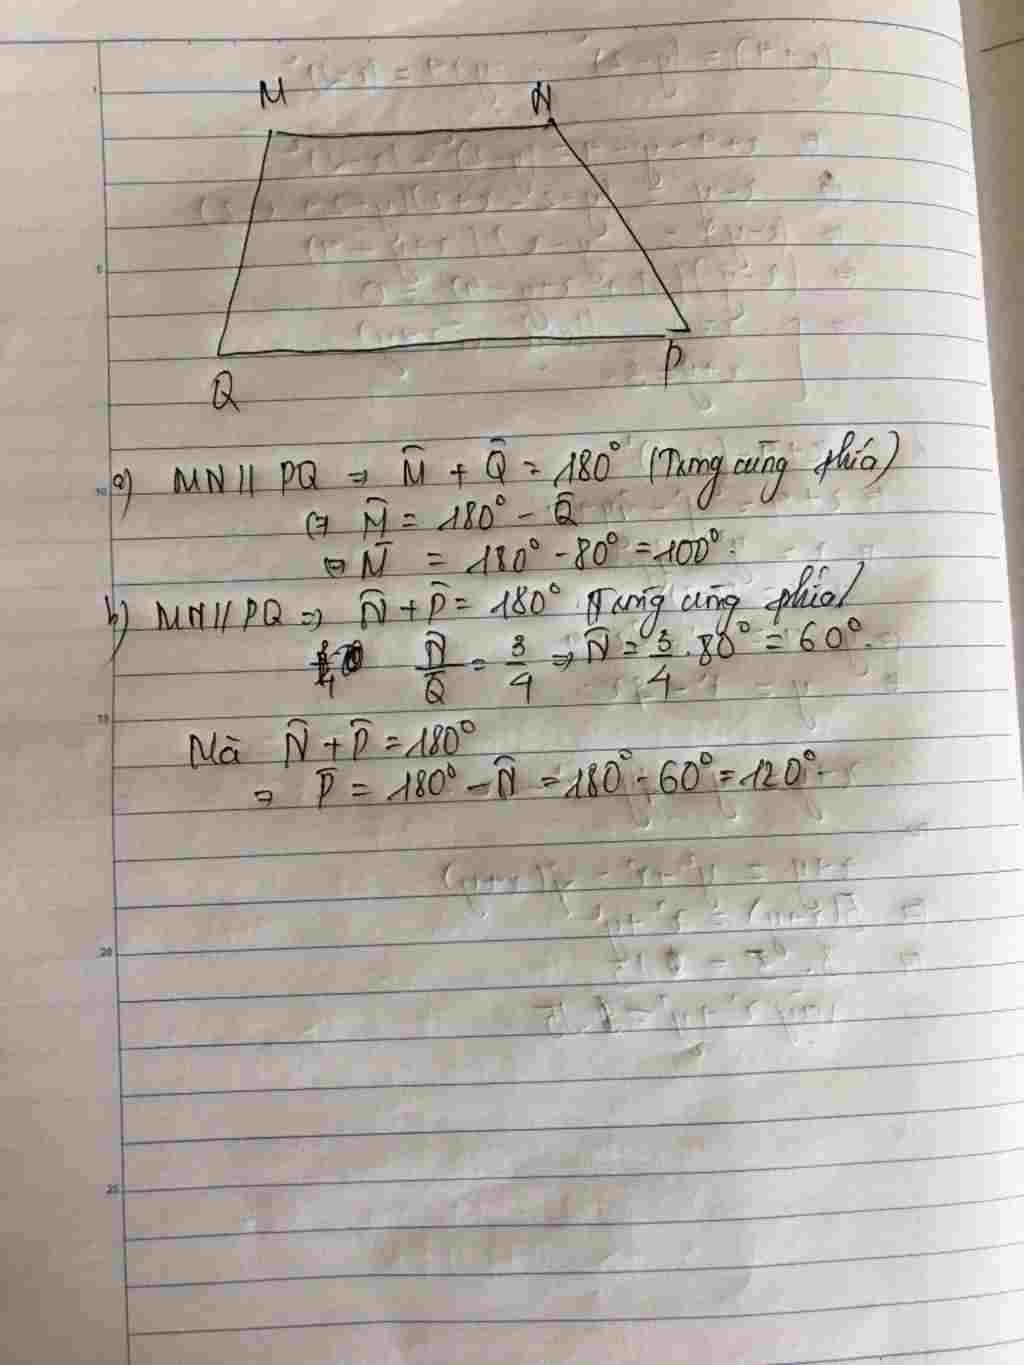 M N
Q P
a) MN // PQ ⇒ M̂ + Q̂ = 180° (Trong cùng phía)
⇔ M̂ = 180° - Q̂
⇔ M̂ = 180° - 80° = 100°.
b) MN // PQ ⇒ N̂ + P̂ = 180° (Trong cùng phía)
N̂/Q̂ = 3/4 ⇒ N̂ = 3/4 . 80° = 60°.
Mà N̂ + P̂ = 180°
⇒ P̂ = 180° - N̂ = 180° - 60° = 120°.